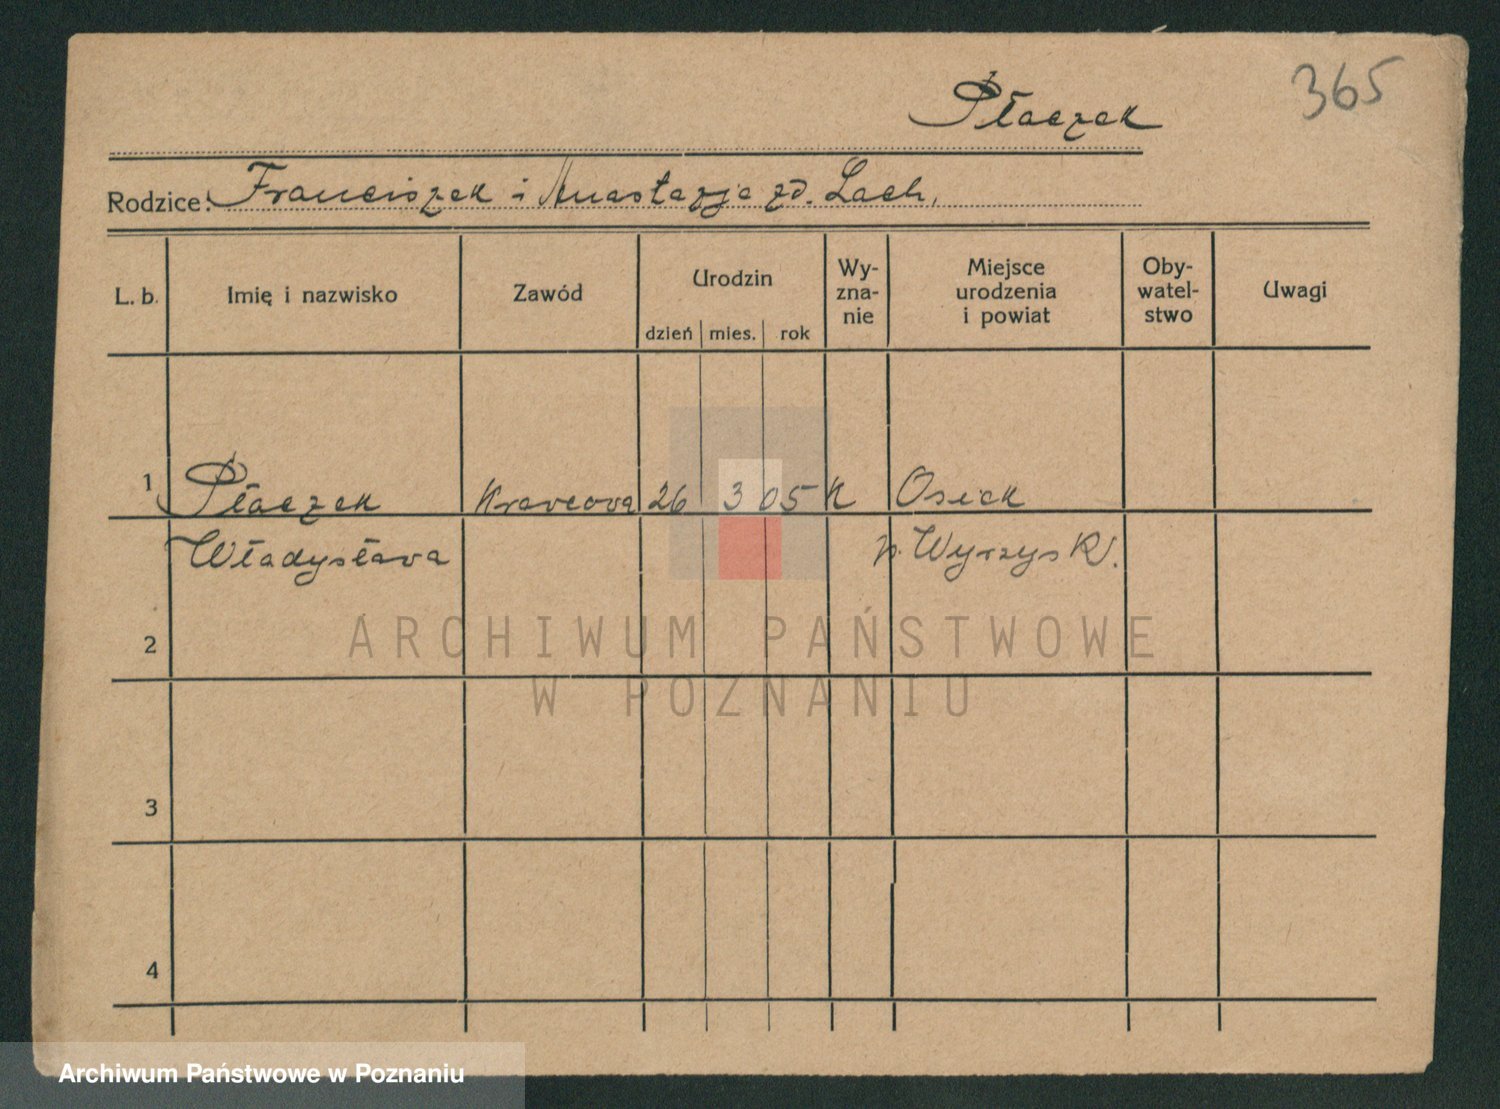 365
Płaczek
Rodzice: Franciszek i Anastazja zd. Lach,
L. b. Imię i nazwisko Zawód Urodzin dzień mies. rok Wy-zna-nie Miejsce urodzenia i powiat Oby-watel-stwo Uwagi
1 Płaczek Krawcowa 26 3 05 K Osiek
Władysława p. Wyrzysk.
2
ARCHIWUM PAŃSTWOWE
W POZNANIU
3
4
Archiwum Państwowe w Poznaniu